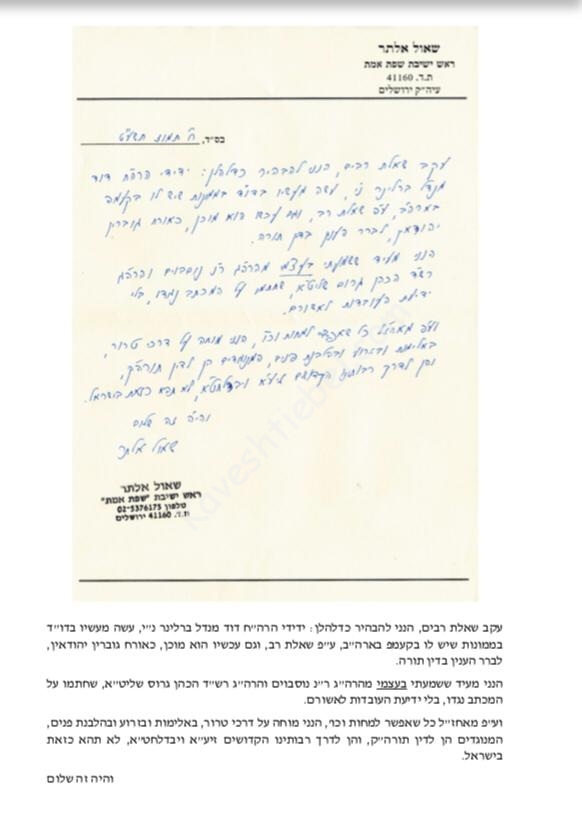 שאול אלתר
ראש ישיבת שפת אמת
ת.ד. 41160
עיה"ק ירושלים
בס"ד, ח' תמוז תשע"ט
עקב שאלת רבים, הנני להבהיר כדלהלן: ידידי הרה"ח דוד
מנדל ברלינר ני', עשה מעשיו בדו"ד בממונות שיש לו בקעמפ
בארה"ב, ע"פ שאלת רב, וגם עכשיו הוא מוכן, כאורח גוברין
יהודאין, לברר הענין בדין תורה.
הנני מעיד ששמעתי בעצמי מהרה"ג ר"נ נוסבוים והרה"ג
רש"ד הכהן גרוס שליט"א, שחתמו על המכתב נגדו, בלי
ידיעת העובדות לאשורם.
וע"פ מאחז"ל כל שאפשר למחות וכו', הנני מוחה על דרכי טרור,
באלימות ובזרוע ובהלבנת פנים, המנוגדים הן לדין תורה"ק,
והן לדרך רבותינו הקדושים זיע"א ויבדלחט"א, לא תהא כזאת בישראל.
והיה זה שלום
שאול אלתר
שאול אלתר
ראש ישיבת "שפת אמת"
טלפון 02-5376175
ת.ד. 41160 ירושלים
kaveshtiebel.com
עקב שאלת רבים, הנני להבהיר כדלהלן: ידידי הרה"ח דוד מנדל ברלינר נ"י, עשה מעשיו בדו"ד
בממונות שיש לו בקעמפ בארה"ב, ע"פ שאלת רב, וגם עכשיו הוא מוכן, כאורח גוברין יהודאין,
לברר הענין בדין תורה.
הנני מעיד ששמעתי בעצמי מהרה"ג ר"נ נוסבוים והרה"ג רש"ד הכהן גרוס שליט"א, שחתמו על
המכתב נגדו, בלי ידיעת העובדות לאשורם.
וע"פ מאחז"ל כל שאפשר למחות וכו', הנני מוחה על דרכי טרור, באלימות ובזרוע ובהלבנת פנים,
המנוגדים הן לדין תורה"ק, והן לדרך רבותינו הקדושים זיע"א ויבדלחט"א, לא תהא כזאת
בישראל.
והיה זה שלום